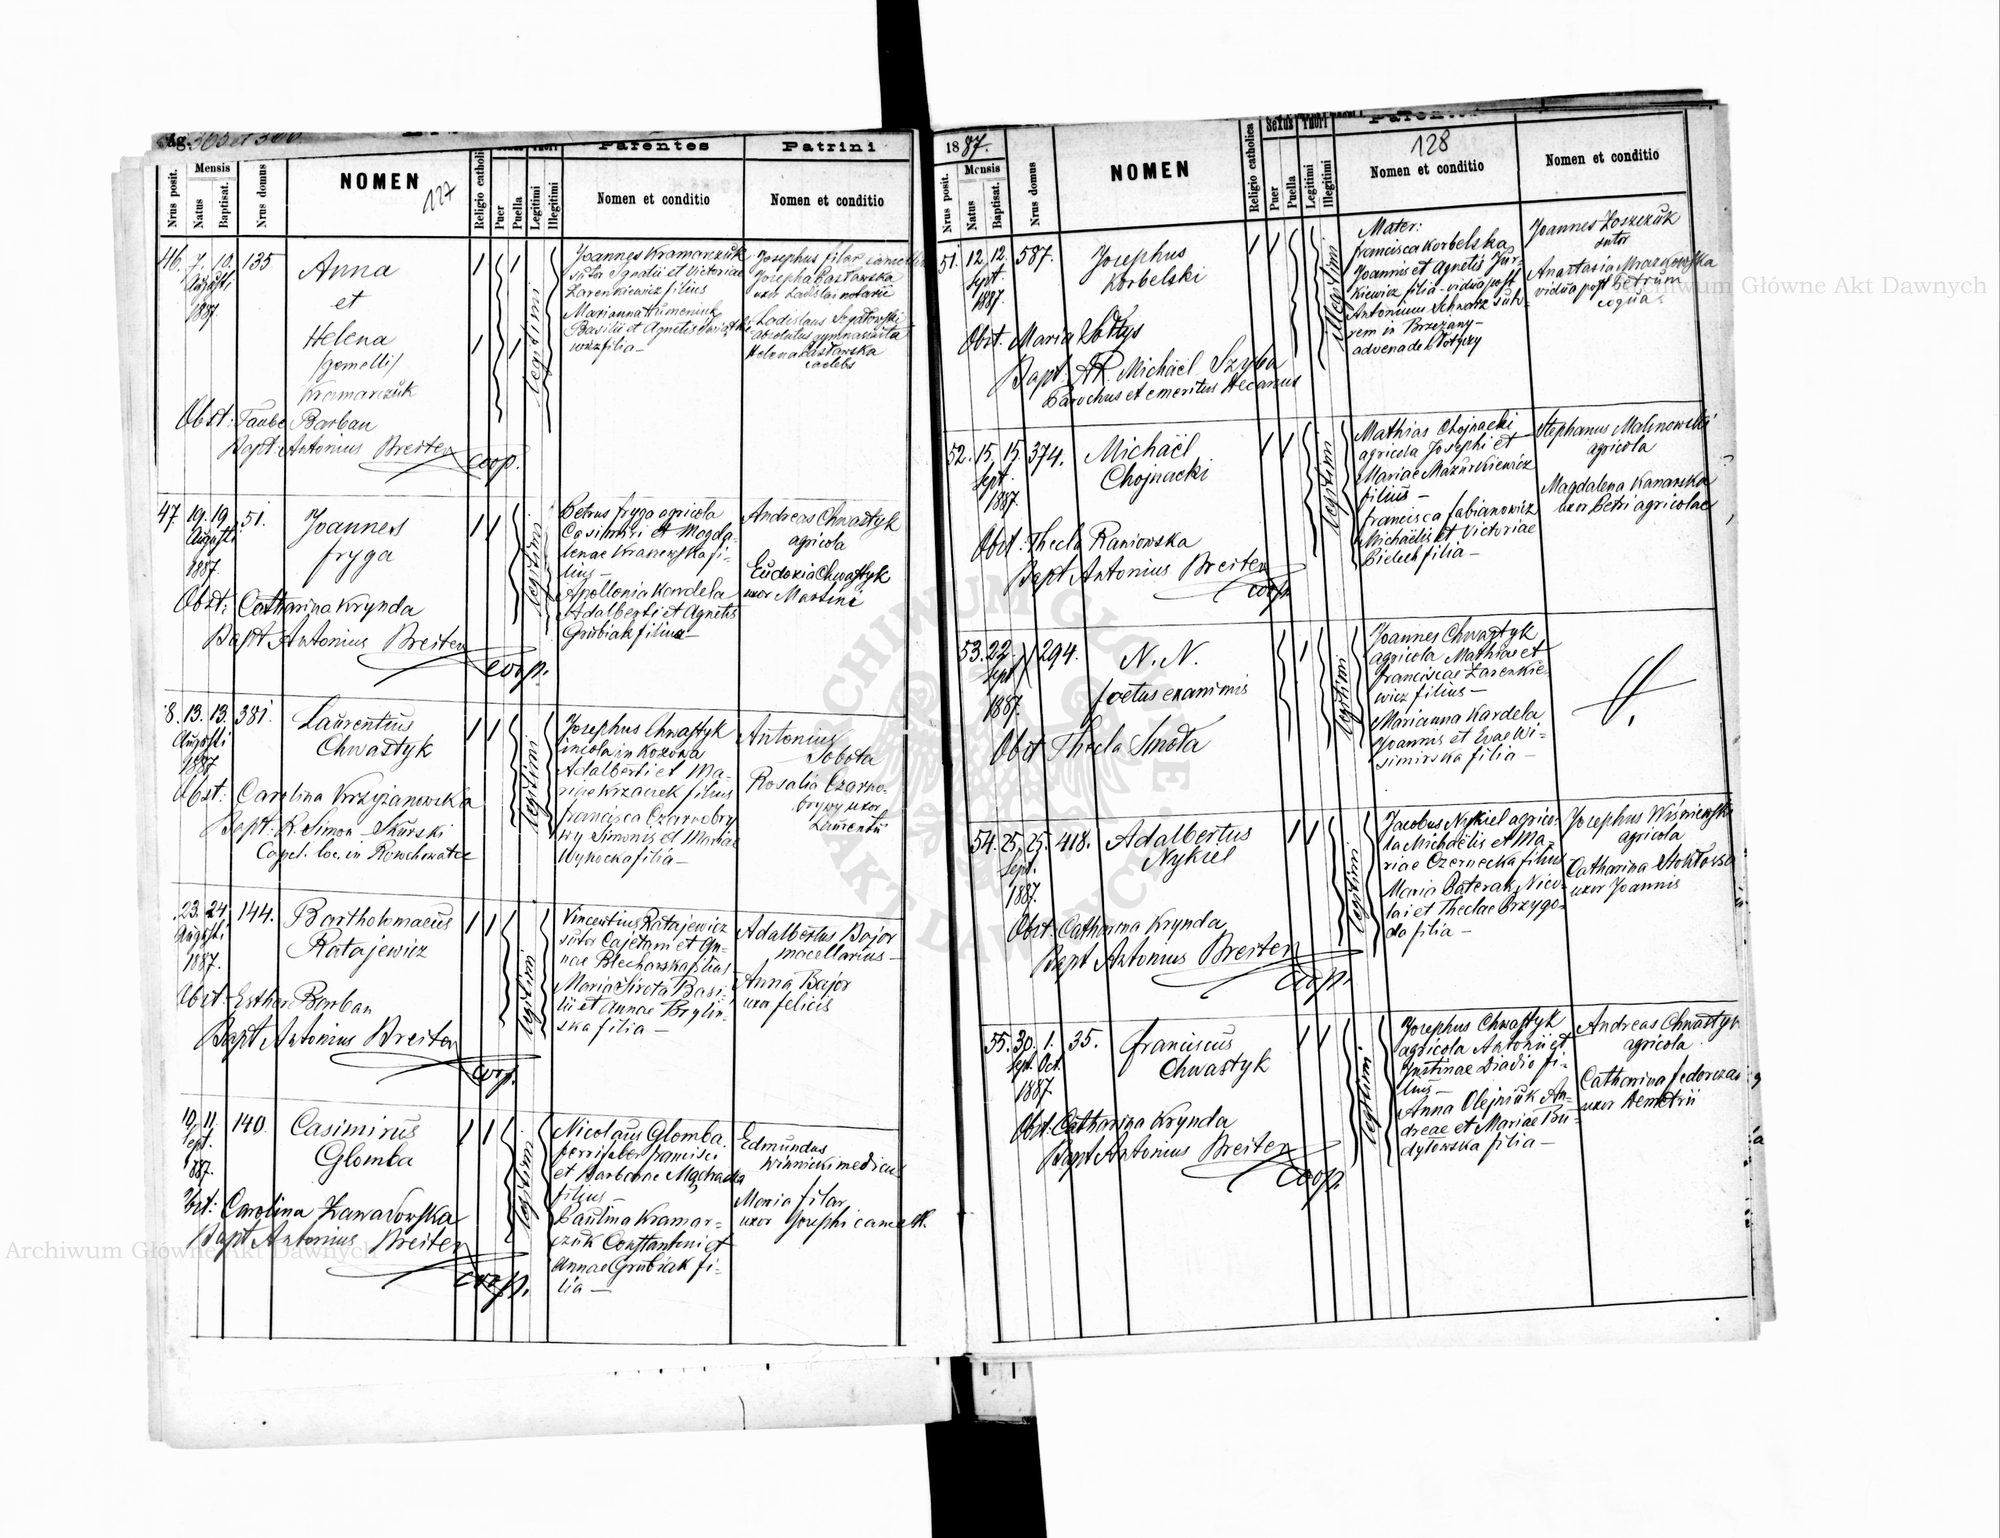 Pag. 365 et 366
Mensis
Parentes
Patrini
Nrus posit.
Natus
Baptisat.
Nrus domus
NOMEN
127
Religio catholica
Puer
Puella
Legitimi
Illegitimi
Nomen et conditio
Nomen et conditio
46. 7. 10. 135
Augusti
1887
Anna
et
Helena
(gemelli)
Kramarczuk
Obst: Taube Barban
Bapt: Antonius Breiter
coop.
legitimi
Joannes Kramarczuk
sutor Ignatii et Victoriae
Zarenkiewicz filius
Marianna
Basilii et Agnetis
filia —
Josephus Filar
Josepha Bastawska
uxor Ladislai notarii
Ladislaus
absolutus gymnasiasta
Helena Bastawska
caelebs
47. 19. 19. 51.
Augusti
1887.
Joannes
Fryga
Obst: Catharina Krynda
Bapt Antonius Breiter
coop.
legitimi
Petrus Fryga agricola
Casimiri et Magda-
lenae Kranewska fi-
lius —
Apollonia Kardela
Adalberti et Agnetis
Grubiak filia —
Andreas Chwastyk
agricola
Eudoxia Chwastyk
uxor Martini
8. 13. 13. 381.
Augusti
1887
Laurentius
Chwastyk
Obst: Carolina Krzyżanowska
Bapt: R. Simon Skurski
Capel. loc. in Rosochowatec
legitimi
Josephus Chwastyk
incola in Kozowa
Adalberti et Ma-
riae Krzaczek filius
Francisca Czarnobry
wy Simonis et Mariae
Wysocka filia —
Antonius
Sobota
Rosalia Czarno-
brywy uxor
Laurentii
23. 24. 144.
Augusti
1887.
Bartholomaeus
Ratajewicz
Obst: Esther Barban
Bapt Antonius Breiter
coop.
legitimi
Vincentius Ratajewicz
sutor Cajetani et An-
nae Blecharska filius
Maria Sirota Basi-
lii et Annae Brylin-
ska filia —
Adalbertus Bajor
macellarius —
Anna Bajor
uxor Felicis
10. 11. 140.
Sept.
1887.
Casimirus
Glomba
Obst: Carolina Zawadowska
Bapt Antonius Breiter
coop.
legitimi
Nicolaus Glomba
ferrifaber Francisci
et Barbarae
filius —
Paulina Kramar-
czuk Constantini et
Annae Grubiak fi-
lia —
Edmundus
Winnicki medicus
Maria Filar
uxor Josephi
1887.
Mensis
Nrus posit.
Natus
Baptisat.
Nrus domus
NOMEN
Religio catholica
Sexus
Thori
Puer
Puella
Legitimi
Illegitimi
Parentes
128
Nomen et conditio
Nomen et conditio
51. 12. 12. 587.
Sept
1887.
Josephus
Korbelski
Obst. Maria Sołtys
Bapt: AR. Michaël Szyba
Parochus et emeritus Decanus
illegitimi
Mater:
Francisca Korbelska
Joannis et Agnetis Jur-
kiewicz filia - vidua post
Antonium Schnarz suto-
rem in Brzezany —
advena de
Joannes Łoszczuk
sutor
Anastasia Mraczkowska
vidua post Petrum
52. 15. 15. 374.
Sept.
1887.
Michaël
Chojnacki
Obst: Thecla Raniowska
Bapt Antonius Breiter
coop.
legitimi
Mathias Chojnacki
agricola Josephi et
Mariae Mazurkiewicz
filius —
Francisca Fabianowicz
Michaëlis et Victoriae
Bielech filia —
Stephanus Malinowski
agricola
Magdalena Kanarska
uxor Petri agricolae
53. 22. 294.
Sept
1887.
N. N.
foetus exanimis
Obst Thecla Smota
legitimi
Joannes Chwastyk
agricola Mathiae et
Franciscae Zarenkie-
wicz filius —
Marianna Kardela
Joannis et Evae Wi-
simirska filia —
54. 25. 25. 418.
Sept.
1887.
Adalbertus
Nykiel
Obst. Catharina Krynda
Bapt Antonius Breiter
coop.
legitimi
Jacobus Nykiel agrico-
la Michaëlis et Ma-
riae Czernecka filius
Maria Baterak Nico-
lai et Theclae Przygo-
da filia —
Josephus Wiśniewski
agricola
Catharina
uxor Joannis
55. 30. 1. 35.
Sept. Oct.
1887
Franciscus
Chwastyk
Obst. Catharina Krynda
Bapt Antonius Breiter
coop.
legitimi
Josephus Chwastyk
agricola Antonii et
Justinae Diadio fi-
lius —
Anna Olejniuk An-
dreae et Mariae Bu-
dytowska filia —
Andreas Chwastyk
agricola
Catharina Fedorczak
uxor Demetrii
Archiwum Główne Akt Dawnych
Archiwum Główne Akt Dawnych
ARCHIWUM GŁÓWNE AKT DAWNYCH